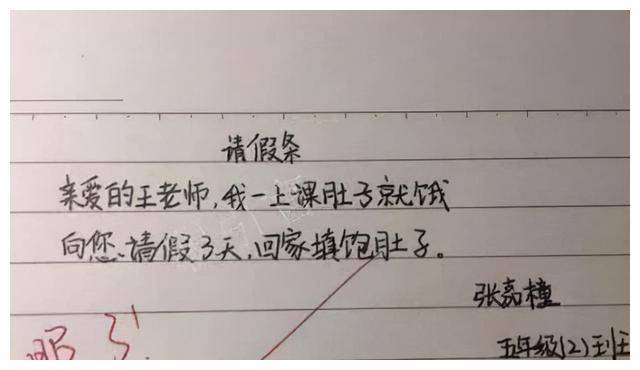 请假条
亲爱的王老师,我一上课肚子就饿
向您请假3天,回家填饱肚子。
张嘉橦
五年级(2)班
服了!